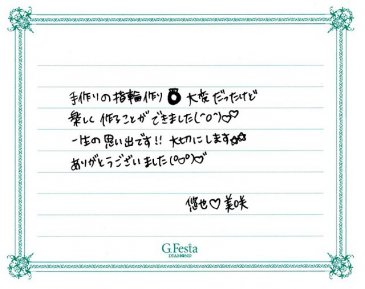 手作りの指輪作り💍大変だったけど
楽しく作ることができました(^o^)♡♡
一生の思い出です!! 大切にします☆☆
ありがとうございました(^o^)♡
悠也♡美咲
G.Festa
DIAMOND